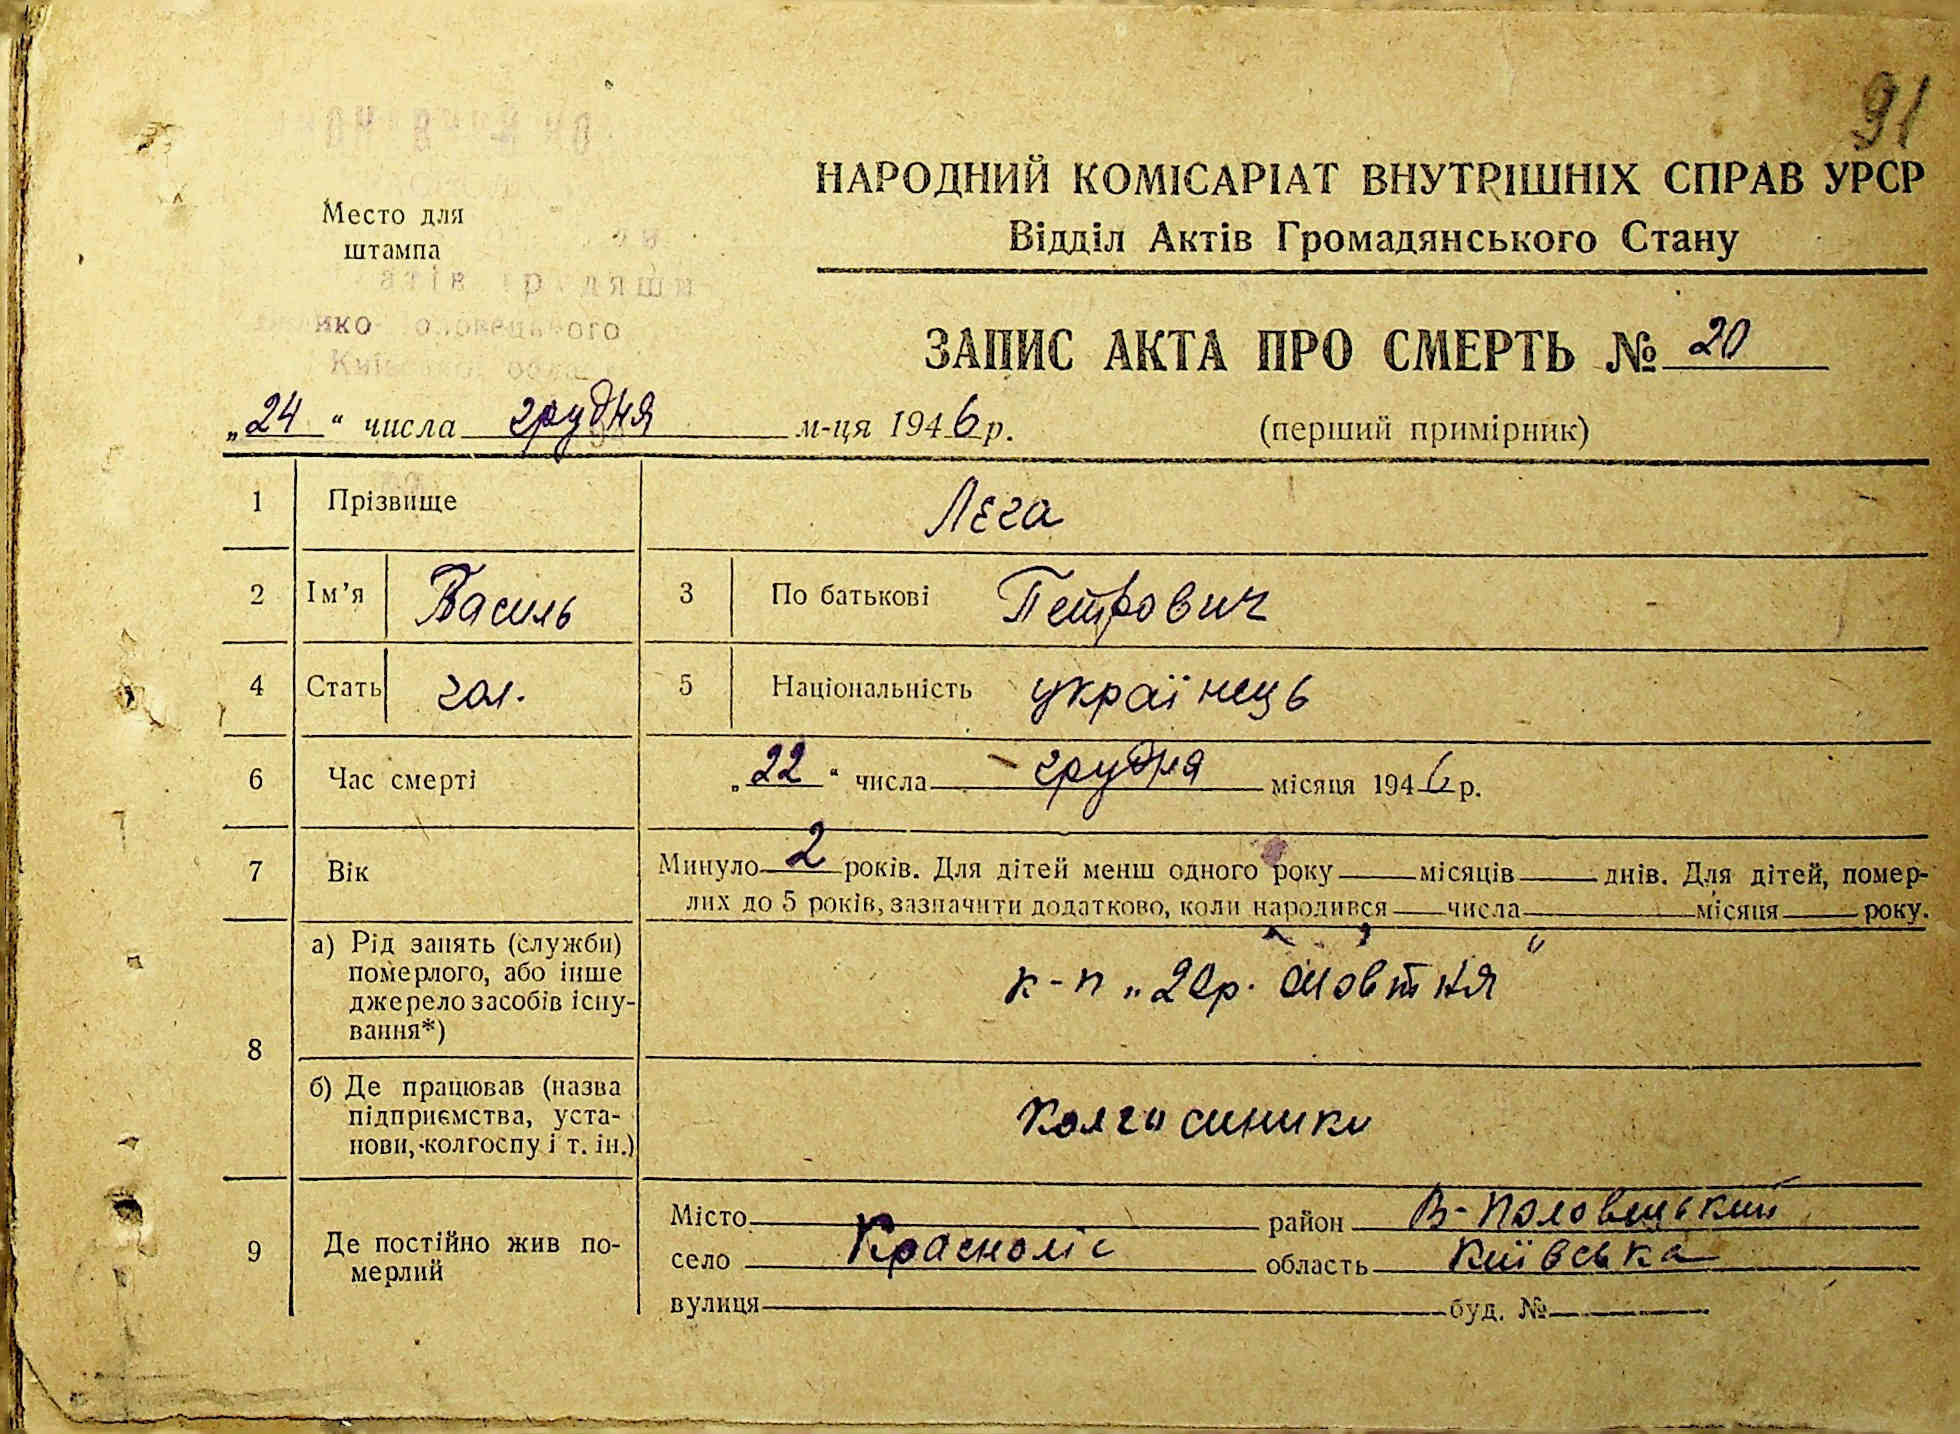 91
НАРОДНИЙ КОМІСАРІАТ ВНУТРІШНІХ СПРАВ УРСР
Место для
штампа
Відділ Актів Громадянського Стану
ЗАПИС АКТА ПРО СМЕРТЬ № 20
„24“ числа грудня м-ця 1946 р.
(перший примірник)
1 Прізвище Лєга
2 Ім’я Василь 3 По батькові Петрович
4 Стать чол. 5 Національність українець
6 Час смерті „22“ числа грудня місяця 1946 р.
7 Вік Минуло 2 років. Для дітей менш одного року місяців днів. Для дітей, помер-
лих до 5 років, зазначити додатково, коли народився числа місяця року.
8 а) Рід занять (служби)
померлого, або інше
джерело засобів існу-
вання*)
к-п „20р. Жовтня“
б) Де працював (назва
підприємства, уста-
нови, колгоспу і т. ін.)
9 Де постійно жив по-
мерлий
Місто район В-Половецький
село Краснолiс область Київська
вулиця буд. №